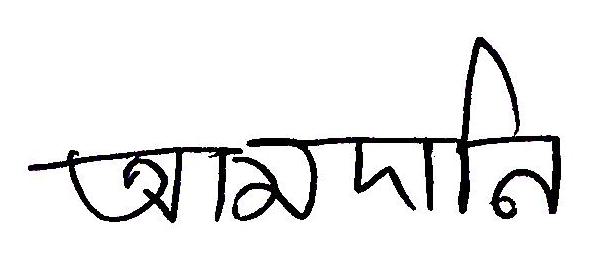 আমদানি